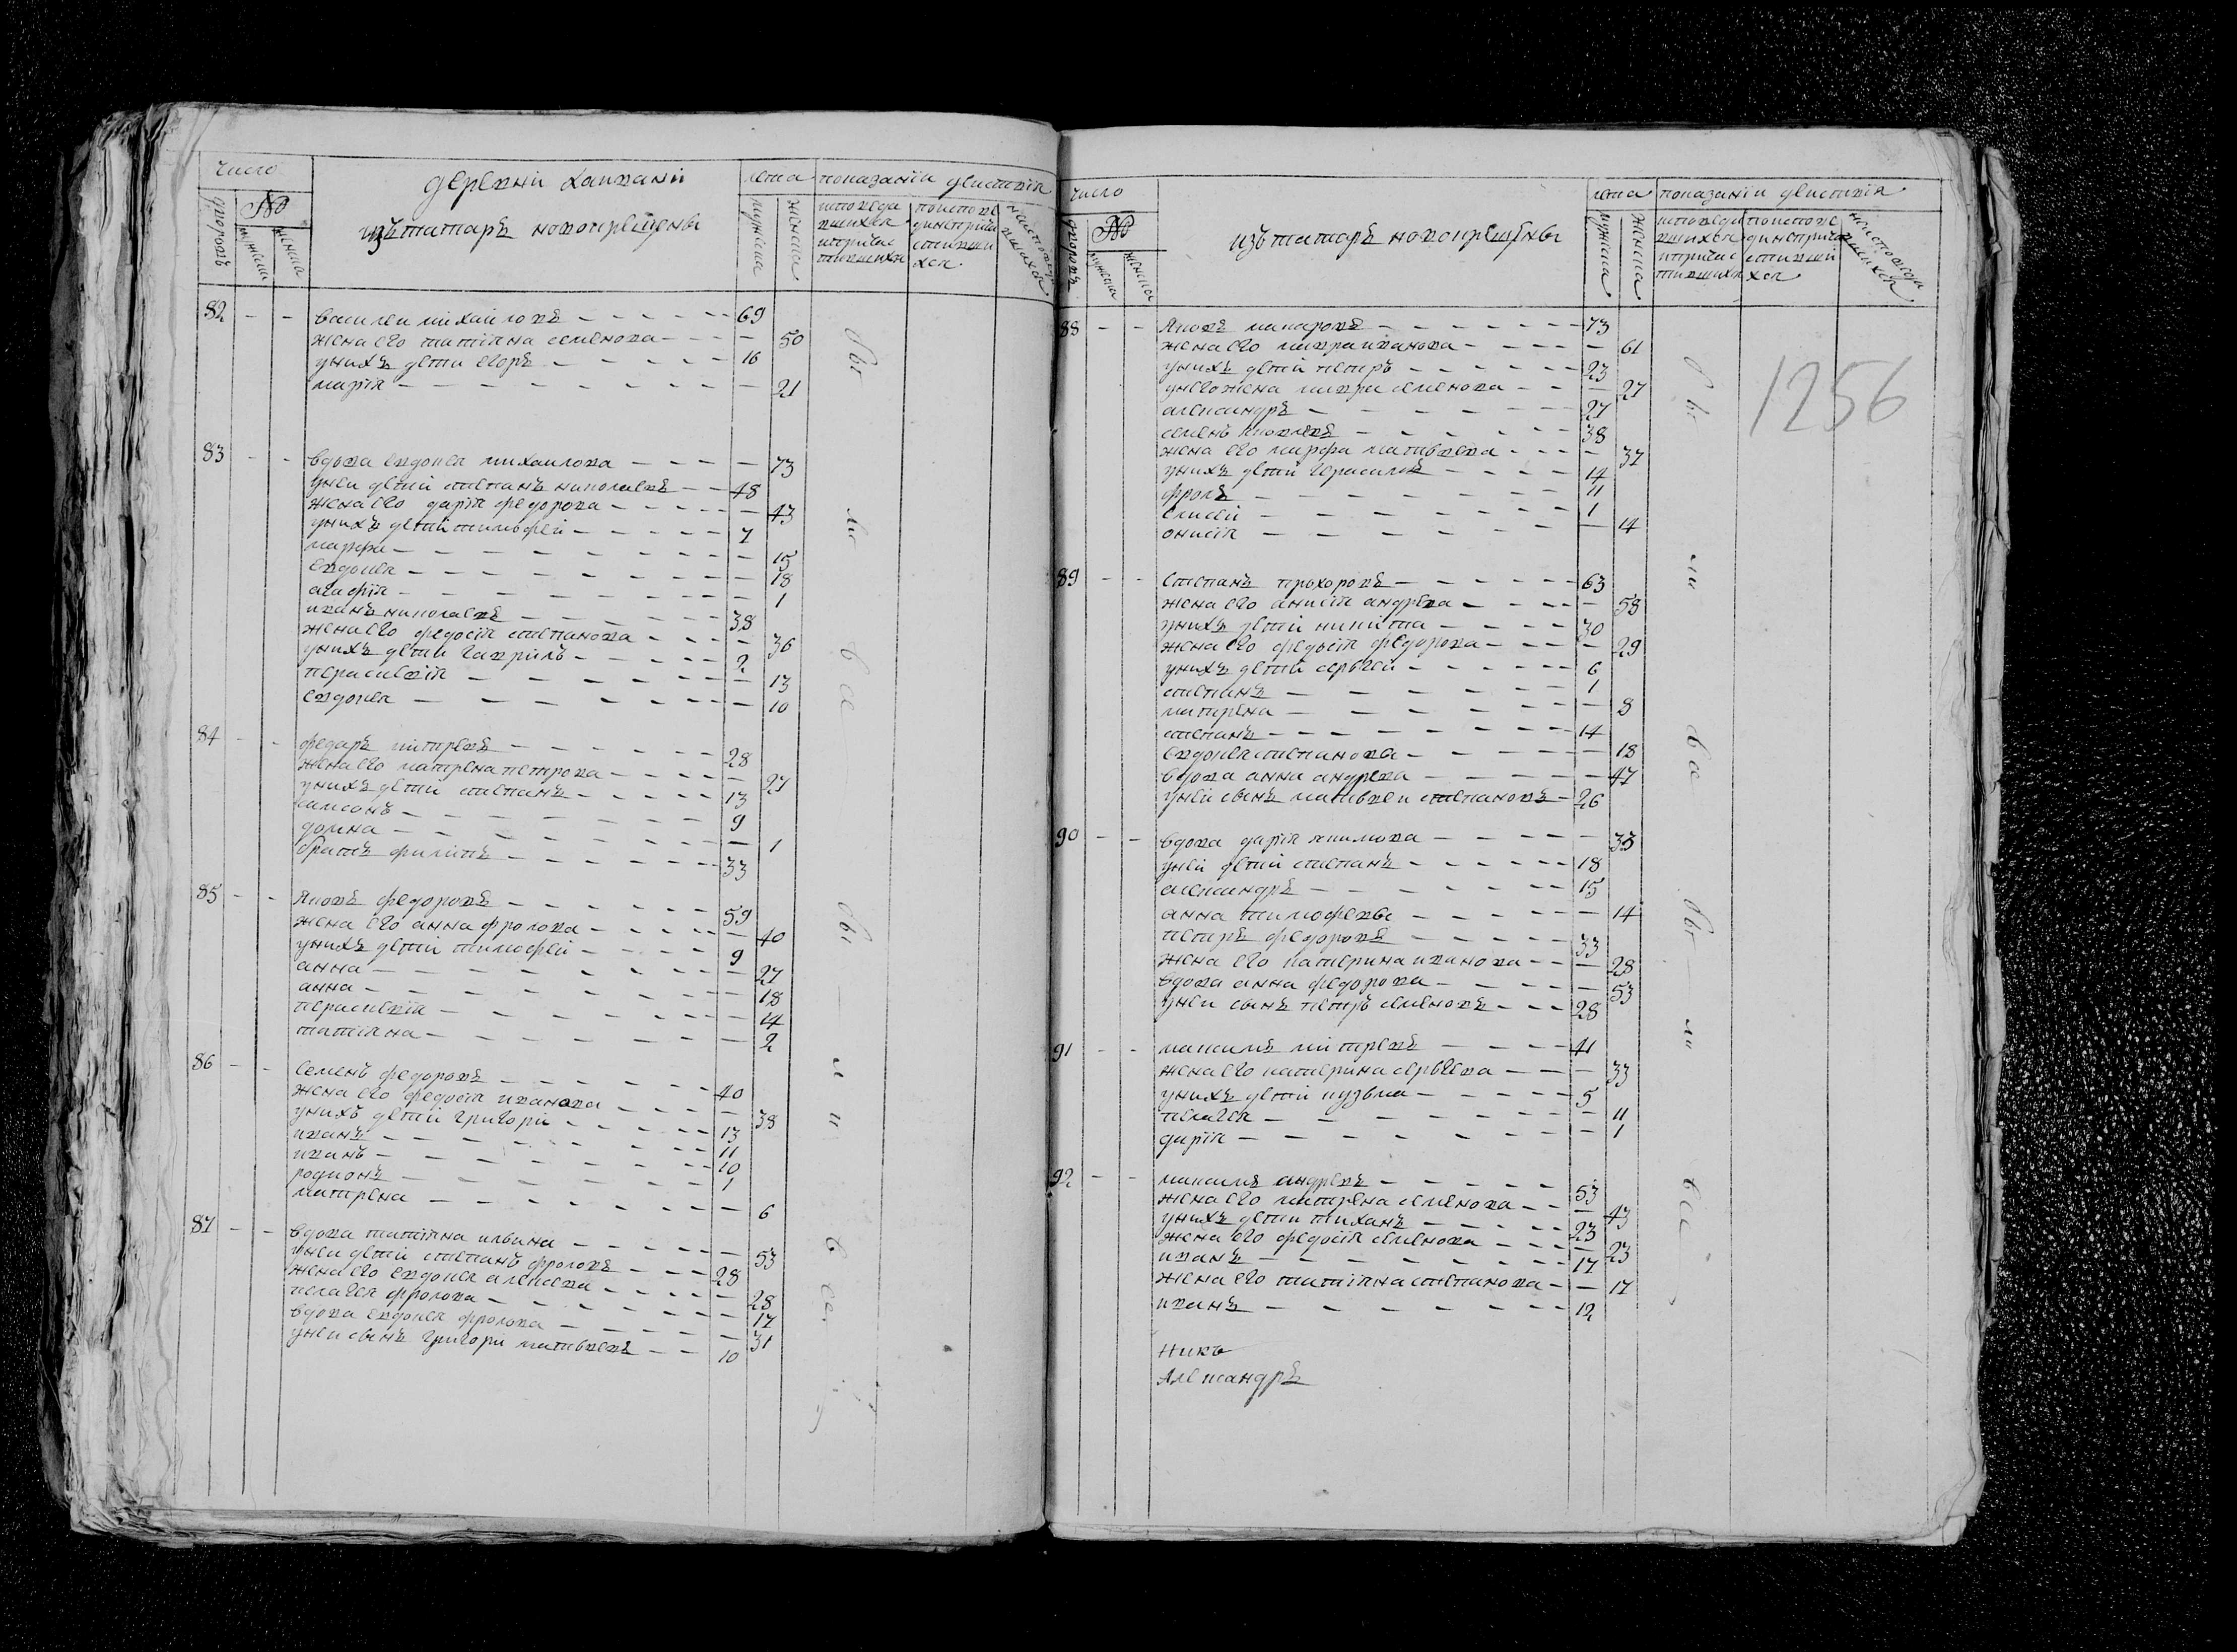 число
деревни
изъ татаръ новокрещены
лета
показании действия
дворовъ
№
мужеска
женска
мужеска
женска
82 - - василеи михаиловъ - - - 69
жена его татияна семенова - - - 50
унихъ дети егоръ - - - 16
мария - - - 21
83 - - вдова евдокея михаилова - - - 73
унеи детий степанъ николаевъ - - 48
жена его дария федорова - - - 43
унихъ детий тимофеи - - - 7
марфа - - - 15
евдокея - - - 18
агафия - - - 1
иванъ николаевъ - - - 38
жена его федосия степанова - - - 36
унихъ дети гаврилъ - - - 2
парасковия - - - 13
евдокея - - - 10
84 - - федаръ митревъ - - - 28
жена его матрена петрова - - - 27
унихъ детий степанъ - - - 13
самсонъ - - - 9
домна - - - 1
братъ филипъ - - - 33
85 - - яковъ федоровъ - - - 59
жена его анна фролова - - - 40
унихъ детий тимофеи - - - 9
анна - - - 27
анна - - - 18
перасковия - - - 14
татияна - - - 2
86 - - семенъ федоровъ - - - 40
жена его федосия иванова - - - 38
унихъ детий григори - - - 13
иванъ - - - 11
иванъ - - - 10
родионъ - - - 1
матрена - - - 6
87 - - вдова татияна ильина - - - 53
унеи детий степанъ фроловъ - - - 28
жена его евдокея алексева - - - 28
пелагея фролова - - - 17
вдова евдокея фролова - - - 31
унеи сынъ григори матвеевъ - - 10
бы ли все бы ли все
число
изъ татаръ новокрещены
лета
показании действия
дворовъ
№
мужеска
женска
мужеска
женска
1256
88 - - яковъ макаровъ - - - 73
жена его мавра иванова - - - 61
унихъ детий петръ - - - 23
унего жена мавра семенова - - - 27
александръ - - - 27
семенъ яковлевъ - - - 38
жена его марфа матвеева - - - 37
унихъ детий герасимъ - - - 14
фролъ - - - 11
елисеи - - - 1
онисия - - - 14
89 - - степанъ прохоровъ - - - 63
жена его анисия андрева - - - 58
унихъ детий никита - - - 30
жена его федосия федорова - - - 29
унихъ детий сергеи - - - 6
степанъ - - - 1
матрена - - - 8
степанъ - - - 14
евдокея степанова - - - 18
вдова анна андрева - - - 47
унеи сынъ матвеи степановъ - 26
90 - - вдова дария якимова - - - 33
унеи детий степанъ - - - 18
александръ - - - 15
анна тимофева - - - 14
петръ федоровъ - - - 33
жена его катерина иванова - - - 28
вдова анна федорова - - - 53
унеи сынъ петръ семеновъ - - - 28
91 - - максимъ митревъ - - - 41
жена его катерина сергеева - - - 33
унихъ детий кузьма - - - 5
пелагея - - - 11
дария - - - 1
92 - - максимъ андревъ - - - 53
жена его матрена семенова - - - 43
унихъ дети тиханъ - - - 23
жена его федосия семенова - - - 23
иванъ - - - 17
жена его татияна степанова - - 17
иванъ - - - 12
никъ
Александръ
бы ли все бы ли все